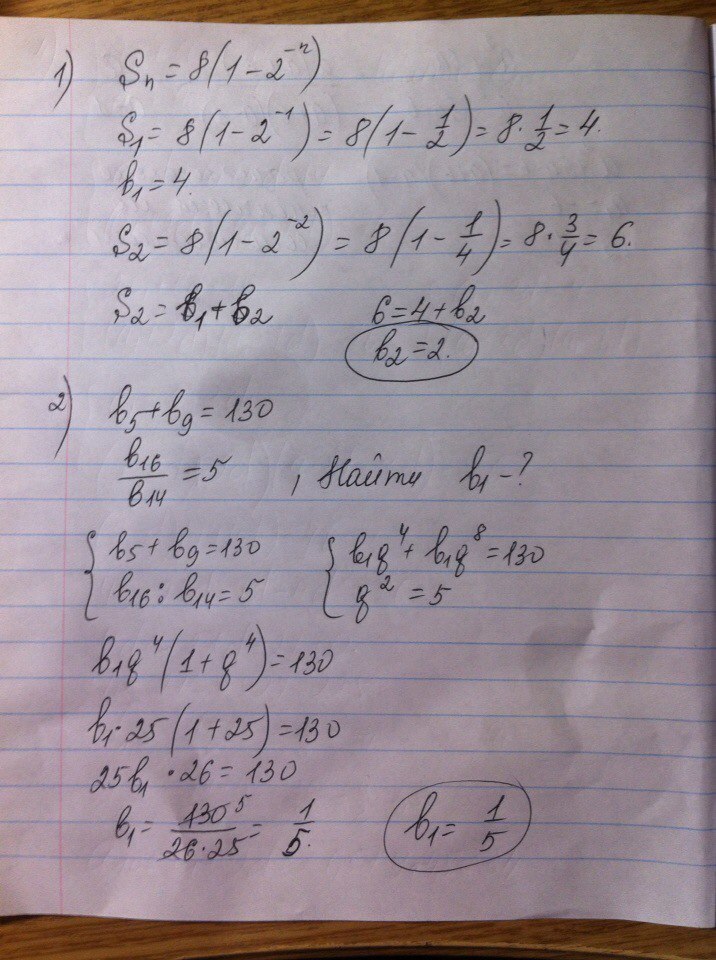 1) Sₙ = 8(1 - 2⁻ⁿ)
S₁ = 8(1 - 2⁻¹) = 8(1 - 1/2) = 8 · 1/2 = 4.
b₁ = 4.
S₂ = 8(1 - 2⁻²) = 8(1 - 1/4) = 8 · 3/4 = 6.
S₂ = b₁ + b₂ 6 = 4 + b₂
b₂ = 2.
2) b₅ + b₉ = 130
b₁₆/b₁₄ = 5 , Найти b₁ - ?
{ b₅ + b₉ = 130 { b₁q⁴ + b₁q⁸ = 130
b₁₆ : b₁₄ = 5 q² = 5
b₁q⁴(1 + q⁴) = 130
b₁ · 25(1 + 25) = 130
25b₁ · 26 = 130
b₁ = 130⁵/(26 · 25) = 1/5. b₁ = 1/5